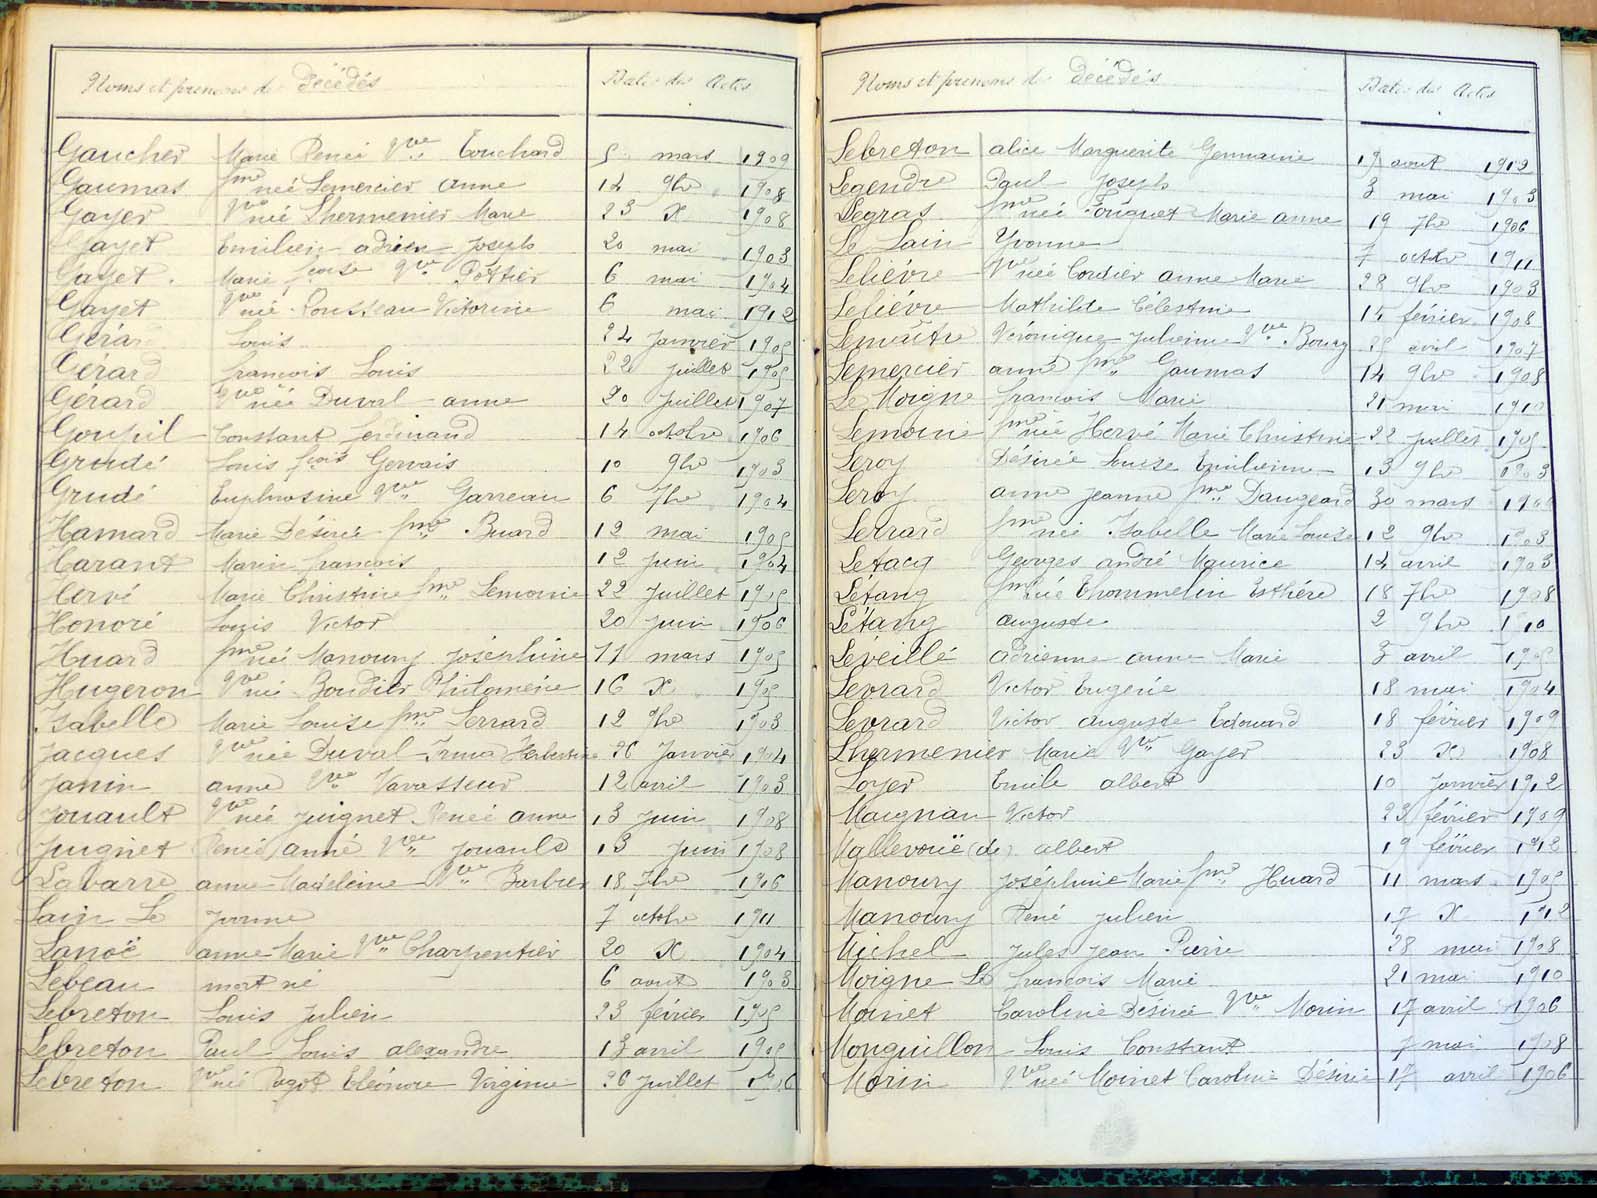 Noms et prénoms des décédés Dates des Actes
Gaucher Marie Renée Vve Touchard 5 mars 1909
Gaumas fme née Lemercier anne 14 9bre 1908
Gayer Vve née Lhermenier Marie 23 X 1908
Gayet Emilien adrien Joseph 20 mai 1903
Gayet Marie fcoise Vve Pottier 6 mai 1904
Gayet Vve née Rousseau Victorine 6 mai 1912
Gérard Louis 24 Janvier 1905
Gérard francois Louis 22 Juillet 1905
Gérard Vve née Duval anne 20 Juillet 1907
Goupil Constant ferdinand 14 octobre 1906
Grudé Louis fcois Gervais 10 9bre 1903
Grudé Euphrosine Vve Garreau 6 7bre 1904
Hamard Marie Désirée fme Buard 12 mai 1905
Harant Marin francois 12 Juin 1904
Hervé Marie Christine fme Lemoine 22 Juillet 1905
Honoré Louis Victor 20 Juin 1906
Huard fme née Manoury Joséphine 11 mars 1905
Hugeron Vve née Boudier Philomène 16 X 1905
Isabelle Marie Louise fme Serrard 12 9bre 1903
Jacques Vve née Duval Irma 26 Janvier 1904
Janin anne Vve Vavasseur 12 avril 1903
Jouault Vve née Juignet Renée anne 13 Juin 1908
Juignet Renée anne Vve Jouault 13 Juin 1908
Labarre anne Madeleine Vve Barbier 18 7bre 1906
Lain Le Yvonne 7 octbre 1911
Lanoë anne Marie Vve Charpentier 20 X 1904
Lebeau mort né 6 aout 1903
Lebreton Louis Julien 23 février 1905
Lebreton Paul Louis alexandre 13 avril 1905
Lebreton Vve née Pagot Eléonore Virginie 26 Juillet 1906
Noms et prénoms des décédés Dates des Actes
Lebreton alice Marguerite Germaine 19 aout 1912
Legendre Paul Joseph 3 mai 1903
Legras fme née Fouquet Marie anne 19 7bre 1906
Le Lain Yvonne 7 octbre 1911
Lelièvre Vve née Cordier anne Marie 28 9bre 1903
Lelièvre Mathilde Célestine 14 février 1908
Lemaître Véronique Julienne Vve Bourg 25 avril 1907
Lemercier anne fme Gaumas 14 9bre 1908
Le Moigne francois Marie 21 mai 1910
Lemoine fme née Hervé Marie Christine 22 Juillet 1905
Leroy Désirée Louise Emilienne 13 9bre 1903
Leroy anne Jeanne fme Daugeard 30 mars
Lerrard fme née Isabelle Marie Louise 12 9bre 1903
Letacq Georges andré Maurice 14 avril 1903
Létang fme née Thommelin Esthére 18 7bre 1908
Létang auguste 2 9bre 1910
Léveillé adrienne anne Marie 3 avril 1905
Levrard Victor Eugène 18 mai 1904
Levrard Victor auguste Edouard 18 février 1909
Lhermenier Marie Vve Gayer 23 X 1908
Loyer Emile albert 10 Janvier 1912
Maignan Victor 23 février 1909
Mallevoüe (de) albert 19 février 1912
Manoury Joséphine Marie fme Huard 11 mars 1905
Manoury René Julien 17 X 1912
Michel Jules Jean Pierre 28 mai 1908
Moigne Le francois Marie 21 mai 1910
Moinet Caroline Désirée Vve Morin 17 avril 1906
Monguillon Louis Constant 7 mai 1908
Morin Vve née Moinet Caroline Désirée 17 avril 1906